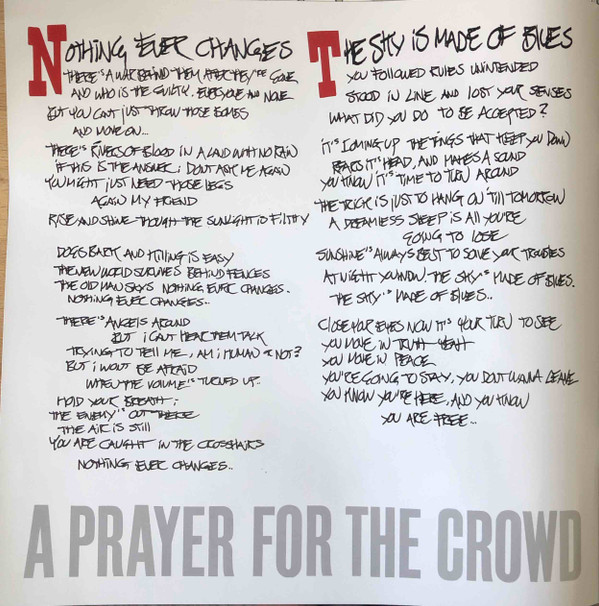 NOTHING EVER CHANGES
THERE'S A WAR BEHIND THEM AFTER THEY'RE GONE
AND WHO IS THE GUILTY. EVERYONE AND NONE
BUT YOU CAN'T JUST THROW THOSE BOMBS
AND MOVE ON...
THERE'S RIVERS OF BLOOD IN A LAND WITH NO RAIN
IF THIS IS THE ANSWER; DON'T ASK ME AGAIN
YOU MIGHT JUST NEED THOSE LEGS
AGAIN MY FRIEND
RISE AND SHINE THOUGH THE SUNLIGHT IS FILTHY
DOGS BARK AND KILLING IS EASY
THE NEW WORLD SURVIVES BEHIND FENCES
THE OLD MAN SAYS NOTHING EVER CHANGES.
NOTHING EVER CHANGES..
THERE'S ANGELS AROUND
BUT I CAN'T HEAR THEM TALK
TRYING TO TELL ME, AM I HUMAN OR NOT?
BUT I WON'T BE AFRAID
WHEN THE VOLUME'S TURNED UP..
HOLD YOUR BREATH;
THE ENEMY'S OUT THERE
THE AIR IS STILL
YOU ARE CAUGHT IN THE CROSSHAIRS
NOTHING EVER CHANGES..
THE SKY IS MADE OF BLUES
YOU FOLLOWED RULES UNINTENDED
STOOD IN LINE AND LOST YOUR SENSES
WHAT DID YOU DO TO BE ACCEPTED?
IT'S COMING UP THE TINGS THAT KEEP YOU DOWN
REARS IT'S HEAD, AND MAKES A SOUND
YOU KNOW IT'S TIME TO TURN AROUND
THE TRICK IS JUST TO HANG ON 'TILL TOMORROW
A DREAMLESS SLEEP IS ALL YOU'RE
GOING TO LOSE
SUNSHINE'S ALWAYS BEST TO SOLVE YOUR TROUBLES
AT NIGHT YOU KNOW. THE SKY'S MADE OF BLUES.
THE SKY'S MADE OF BLUES..
CLOSE YOUR EYES NOW IT'S YOUR TURN TO SEE
YOU MOVE IN TRUTH YEAH
YOU MOVE IN PEACE
YOU'RE GOING TO STAY, YOU DON'T WANNA LEAVE
YOU KNOW YOU'RE HERE, AND YOU KNOW
YOU ARE FREE...
A PRAYER FOR THE CROWD